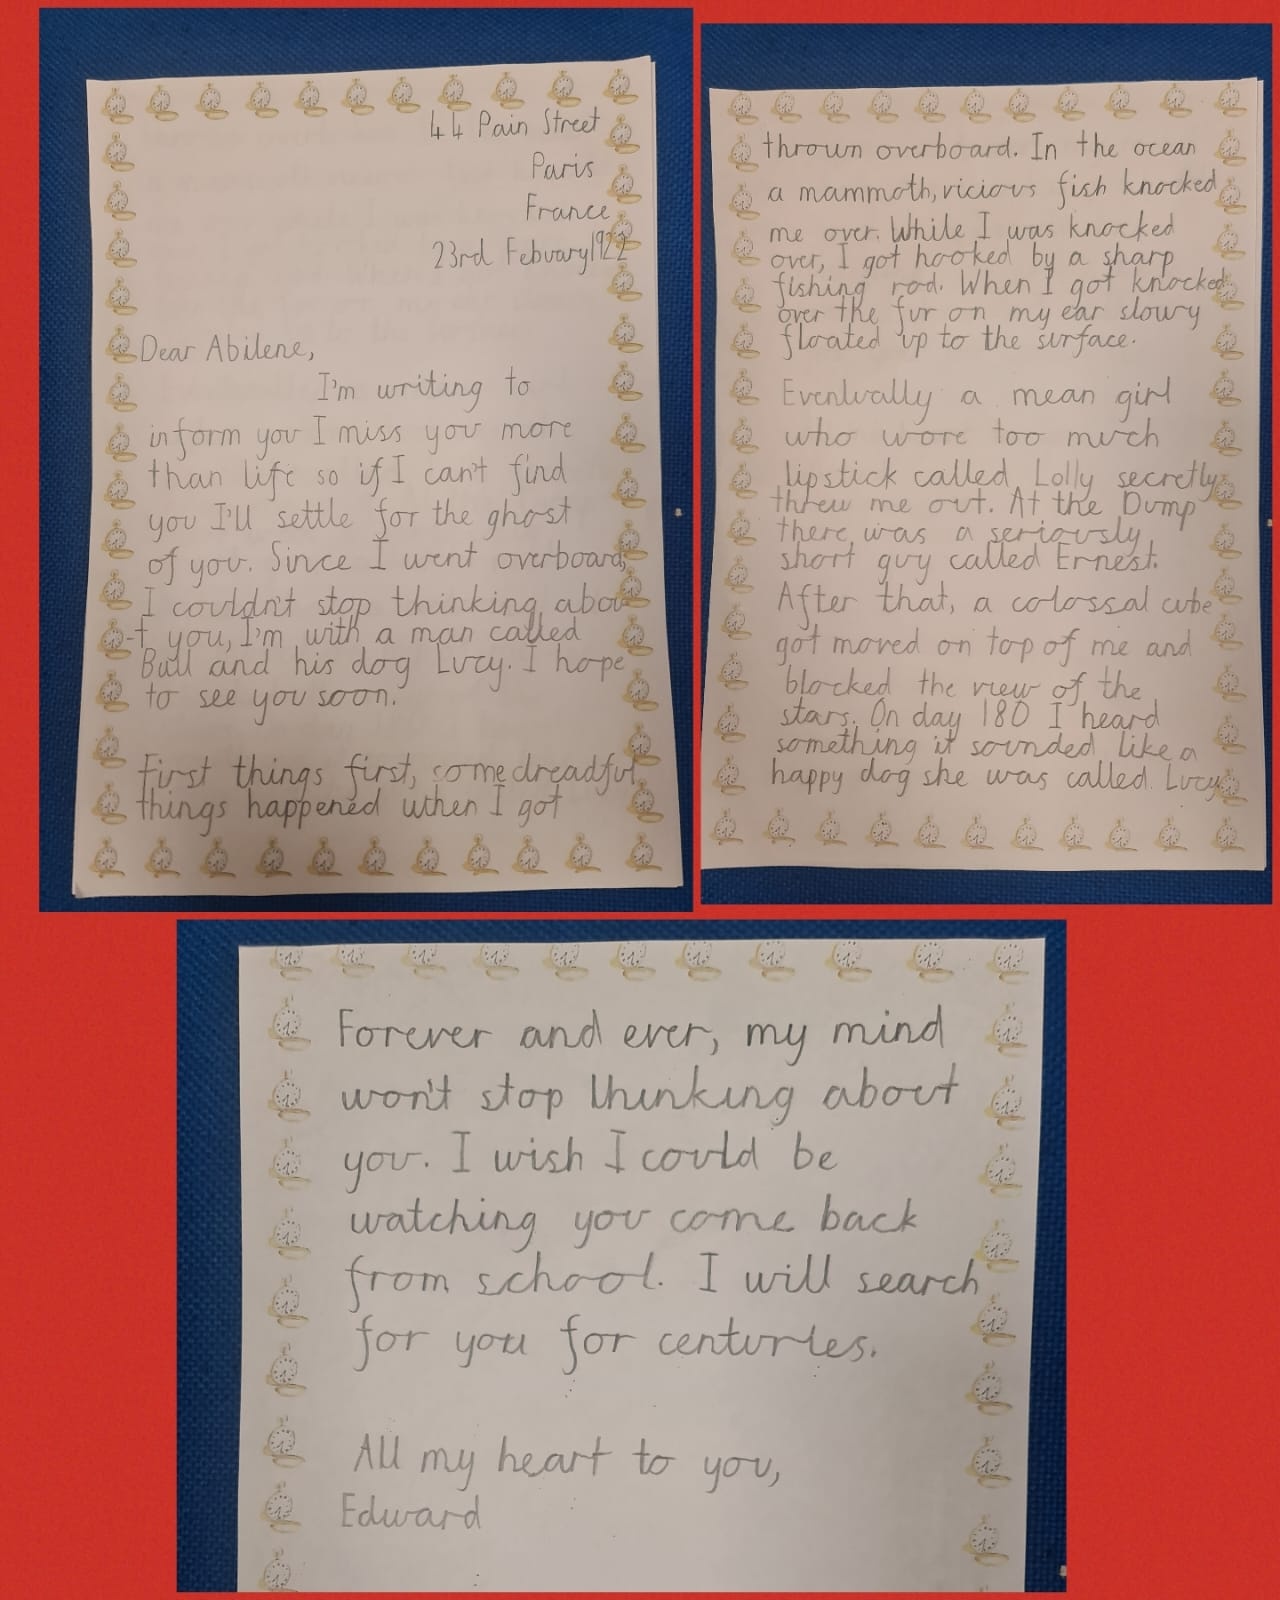 44 Pain Street
Paris
France
23rd Febuary 1922
Dear Abilene,
I'm writing to
inform you I miss you more
than life so if I can't find
you I'll settle for the ghost
of you. Since I went overboard,
I couldn't stop thinking abou
-t you, I'm with a man called
Bull and his dog Lucy. I hope
to see you soon.
First things first, some dreadful
things happened when I got
thrown overboard. In the ocean
a mammoth, vicious fish knocked
me over. While I was knocked
over, I got hooked by a sharp
fishing rod. When I got knocked
over the fur on my ear slowy
floated up to the surface.
Eventually a mean girl
who wore too much
lipstick called Lolly secretly
threw me out. At the Dump
there was a seriously
short guy called Ernest.
After that, a colossal cube
got moved on top of me and
blocked the view of the
stars. On day 180 I heard
something it sounded like a
happy dog she was called Lucy
Forever and ever, my mind
won't stop thinking about
you. I wish I could be
watching you come back
from school. I will search
for you for centuries.
All my heart to you,
Edward